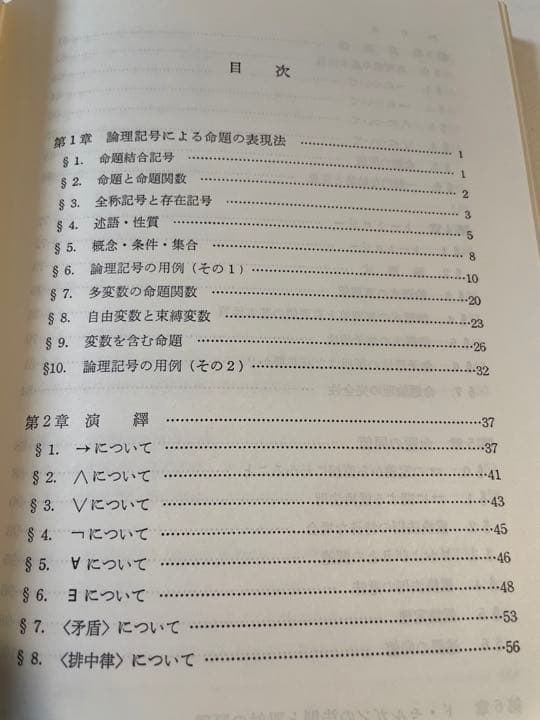 目 次
第1章 論理記号による命題の表現法 1
§1. 命題結合記号 1
§2. 命題と命題関数 2
§3. 全称記号と存在記号 3
§4. 述語・性質 5
§5. 概念・条件・集合 8
§6. 論理記号の用例(その1) 10
§7. 多変数の命題関数 20
§8. 自由変数と束縛変数 23
§9. 変数を含む命題 26
§10. 論理記号の用例(その2) 32
第2章 演繹 37
§1. →について 37
§2. ∧について 41
§3. ∨について 43
§4. ¬について 45
§5. ∀について 46
§6. ∃について 48
§7. 〈矛盾〉について 53
§8. 〈排中律〉について 56